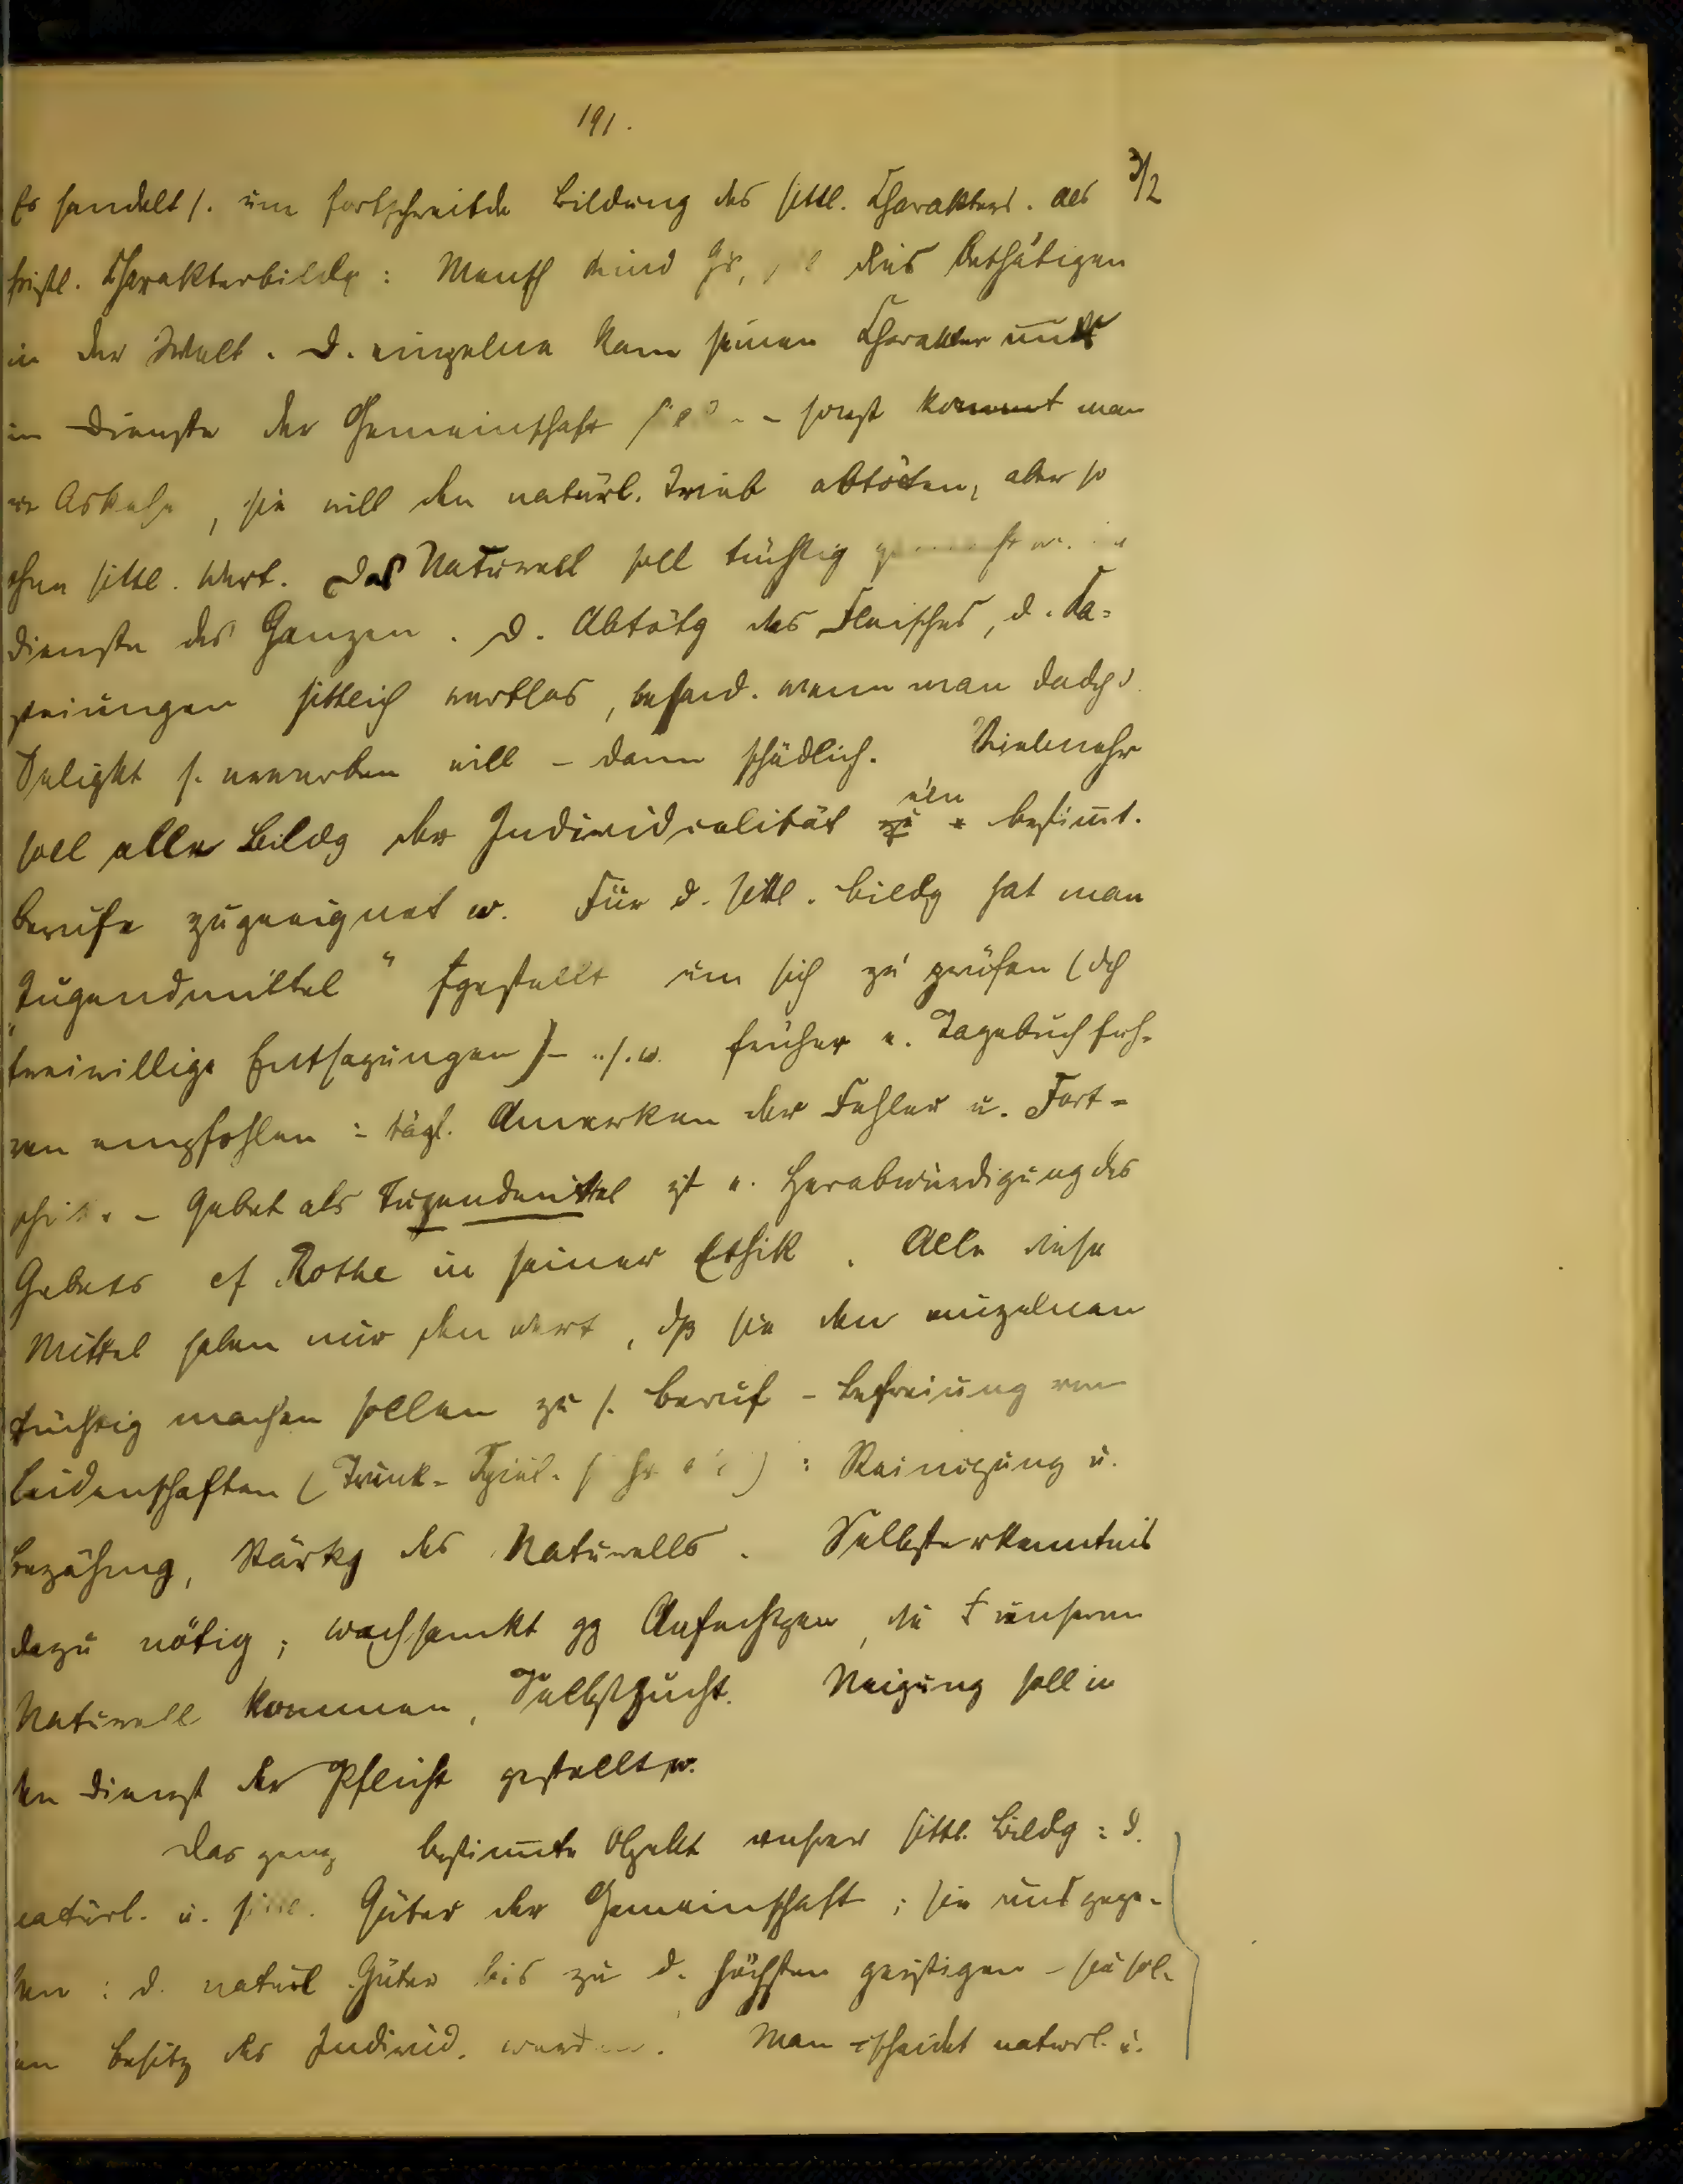 191.
3/2
Es handelt s. um fortschreitde Bildung des sittl. Charakters. Als
christl. Charakterbildg: Mensch Kind Gs, dies bethätigen
in der Welt. D. einzelne kann seinen Charakter nur
im Dienste der Gemeinschaft – sonst kommt man
Askese, sie will den natürl. Trieb abtöten, aber so
ohne sittl. Wert. Das Naturell soll tüchtig gemacht w. im
Dienste des Ganzen. D. Abtötg des Fleisches, d. Ka-
steiungen sittlich wertlos, besond. wenn man dadch
Seligkt s. erwerben will – dann schädlich. Vielmehr
soll alle Bildg der Individualität bestimt.
Berufe zugeeignet w. Für d. sittl. Bildg hat man
"Tugendmittel" fgestellt um sich zu prüfen (dch
freiwillige Entsagungen) – u.s.w. früher e. Tagebuch füh-
ren empfohlen: tägl. Anmerken der Fehler u. Fort-
schritte – Gebet als Tugendmittel ist e. Herabwürdigung des
Gebets cf Rothe in seiner Ethik. Alle diese
Mittel haben nur den Wert, dß sie den einzelnen
tüchtig machen sollen zu s. Beruf – Befreiung von
Leidenschaften (Trunk- Spiel- ): Reinigung u.
Bezähmg, Stärkg des Naturells. Selbsterkenntnis
dazu nötig; Wachsamkt gg Anfechtgen, die f unserem
Naturell kommen, Selbstzucht. Neigung soll in
den Dienst der Pflicht gestellt w.
Das ganz bestimmte Objekt unsrer sittl. Bildg: d.
natürl. u. sittl. Güter der Gemeinschaft; sie sind gege-
ben: d. natürl Güter bis zu d. höchsten geistigen – sie sol-
len Besitz des Individ. werden. Man scheidet natürl. u.